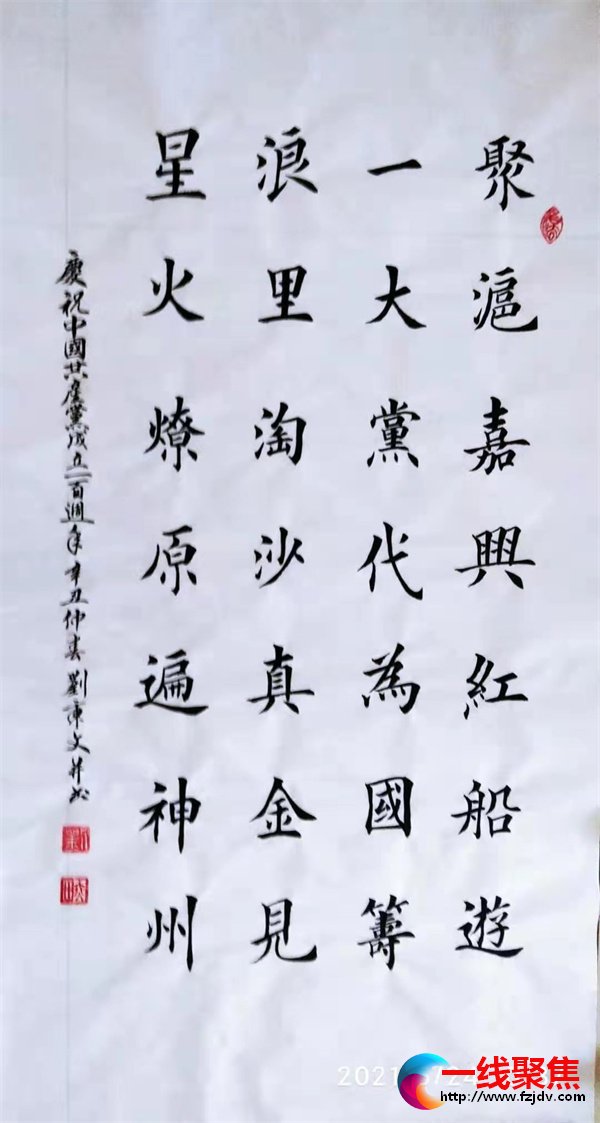 聚滬嘉興紅船遊
一大黨代為國籌
浪里淘沙真金見
星火燎原遍神州
慶祝中國共產黨成立一百週年辛丑仲春劉東文并书
一线聚焦
http://www.fzjdv.com